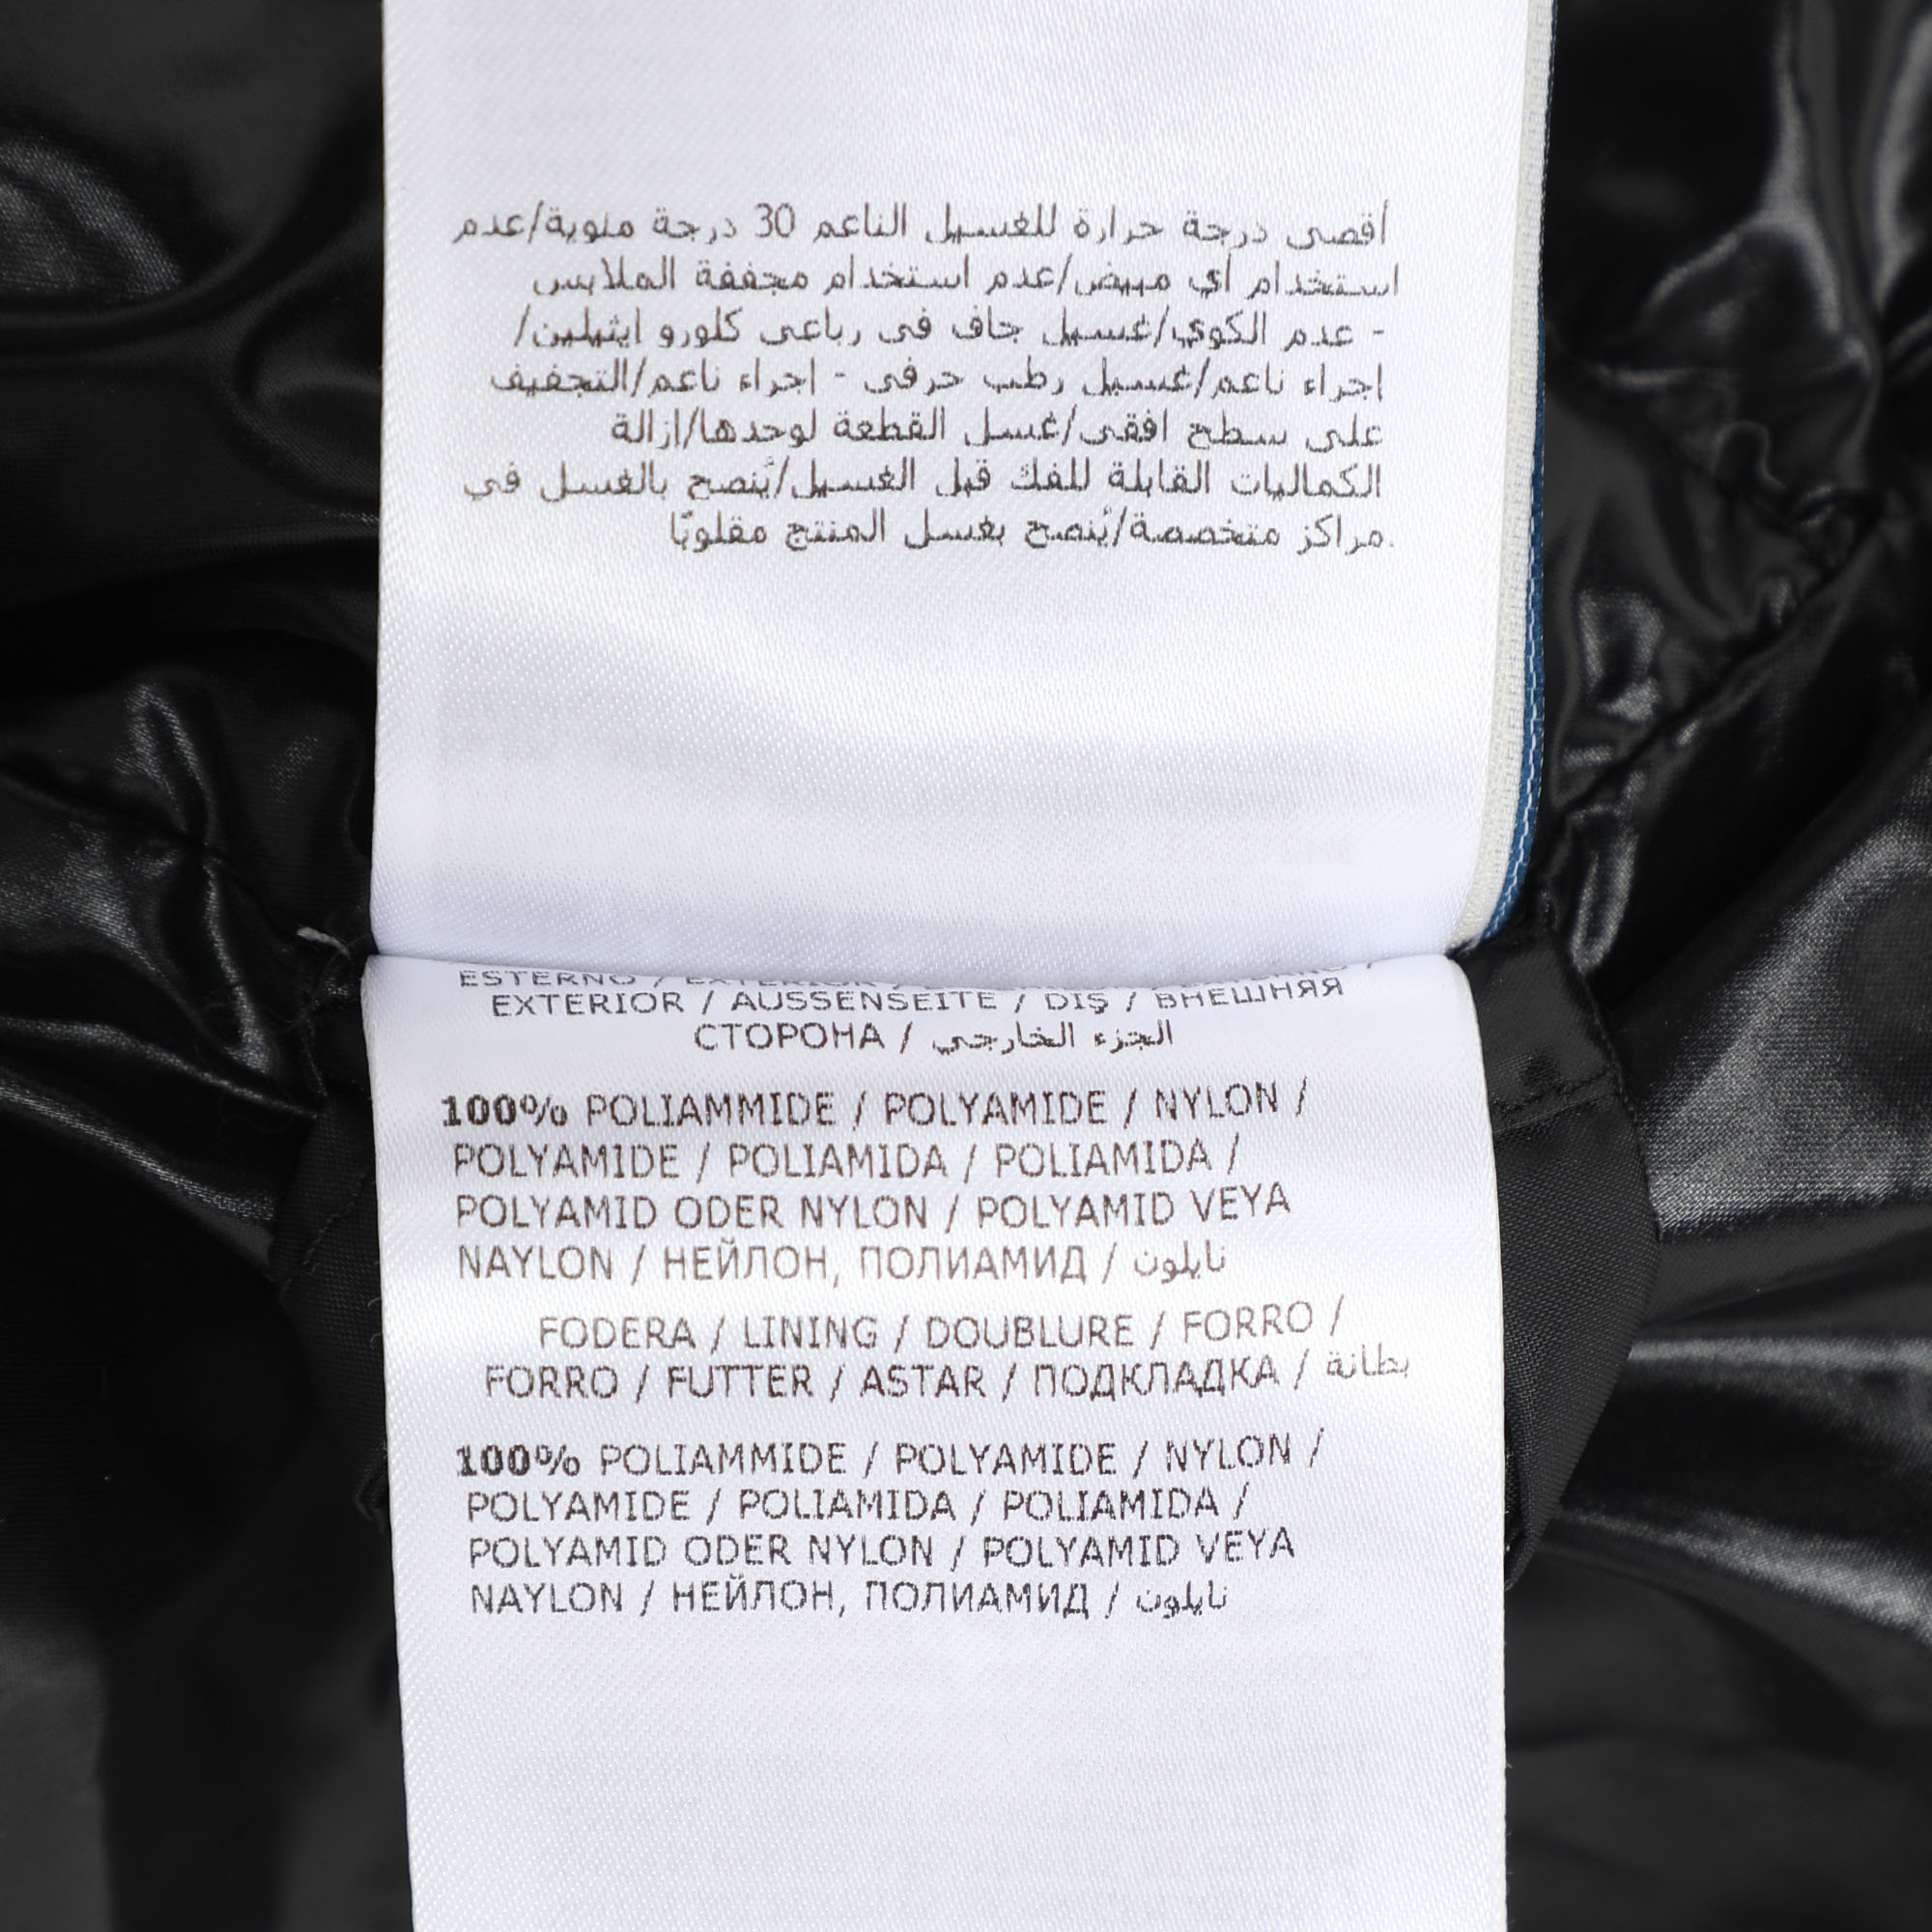 أقصى درجة حرارة للغسيل الناعم 30 درجة مئوية/عدم
استخدام أي مبيض/عدم استخدام مجففة الملابس
- عدم الكوي/غسيل جاف في رباعي كلورو ايثيلين/
اجراء ناعم/غسيل رطب حرفي - اجراء ناعم/التجفيف
على سطح افقي/غسل القطعة لوحدها/ازالة
الكماليات القابلة للفك قبل الغسيل/يُنصح بالغسل في
مراكز متخصصة/يُنصح بغسل المنتج مقلوبًا.
ESTERNO / EXTERIOR /
EXTERIOR / AUSSENSEITE / DIŞ / ВНЕШНЯЯ
СТОРОНА / الجزء الخارجي
100% POLIAMMIDE / POLYAMIDE / NYLON /
POLYAMIDE / POLIAMIDA / POLIAMIDA /
POLYAMID ODER NYLON / POLYAMID VEYA
NAYLON / НЕЙЛОН, ПОЛИАМИД / نايلون
FODERA / LINING / DOUBLURE / FORRO /
FORRO / FUTTER / ASTAR / ПОДКЛАДКА / بطانة
100% POLIAMMIDE / POLYAMIDE / NYLON /
POLYAMIDE / POLIAMIDA / POLIAMIDA /
POLYAMID ODER NYLON / POLYAMID VEYA
NAYLON / НЕЙЛОН, ПОЛИАМИД / نايلون